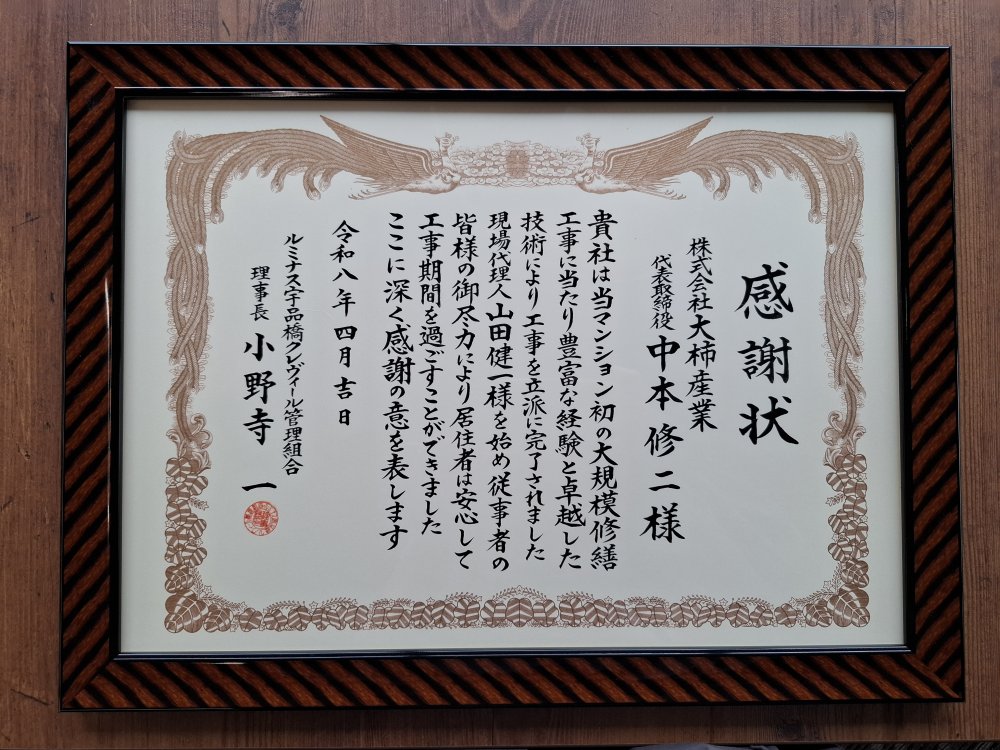 感謝状
株式会社大柿産業
代表取締役 中本修二様
貴社は当マンション初の大規模修繕
工事に当たり豊富な経験と卓越した
技術により工事を立派に完了されました
現場代理人山田健一様を始め従事者の
皆様の御尽力により居住者は安心して
工事期間を過ごすことができました
ここに深く感謝の意を表します
令和八年四月吉日
ルミナス宇品橋クレヴィール管理組合
理事長 小野寺 一